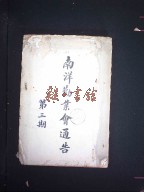 南洋勸業會通告
第二期
雜書館